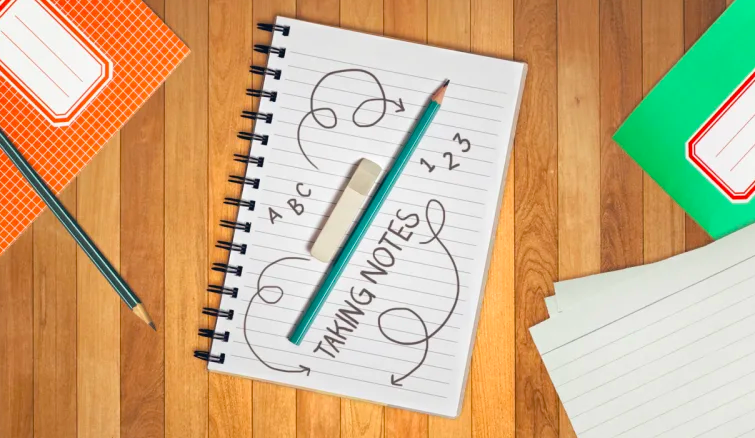 ABC
123
TAKING NOTES